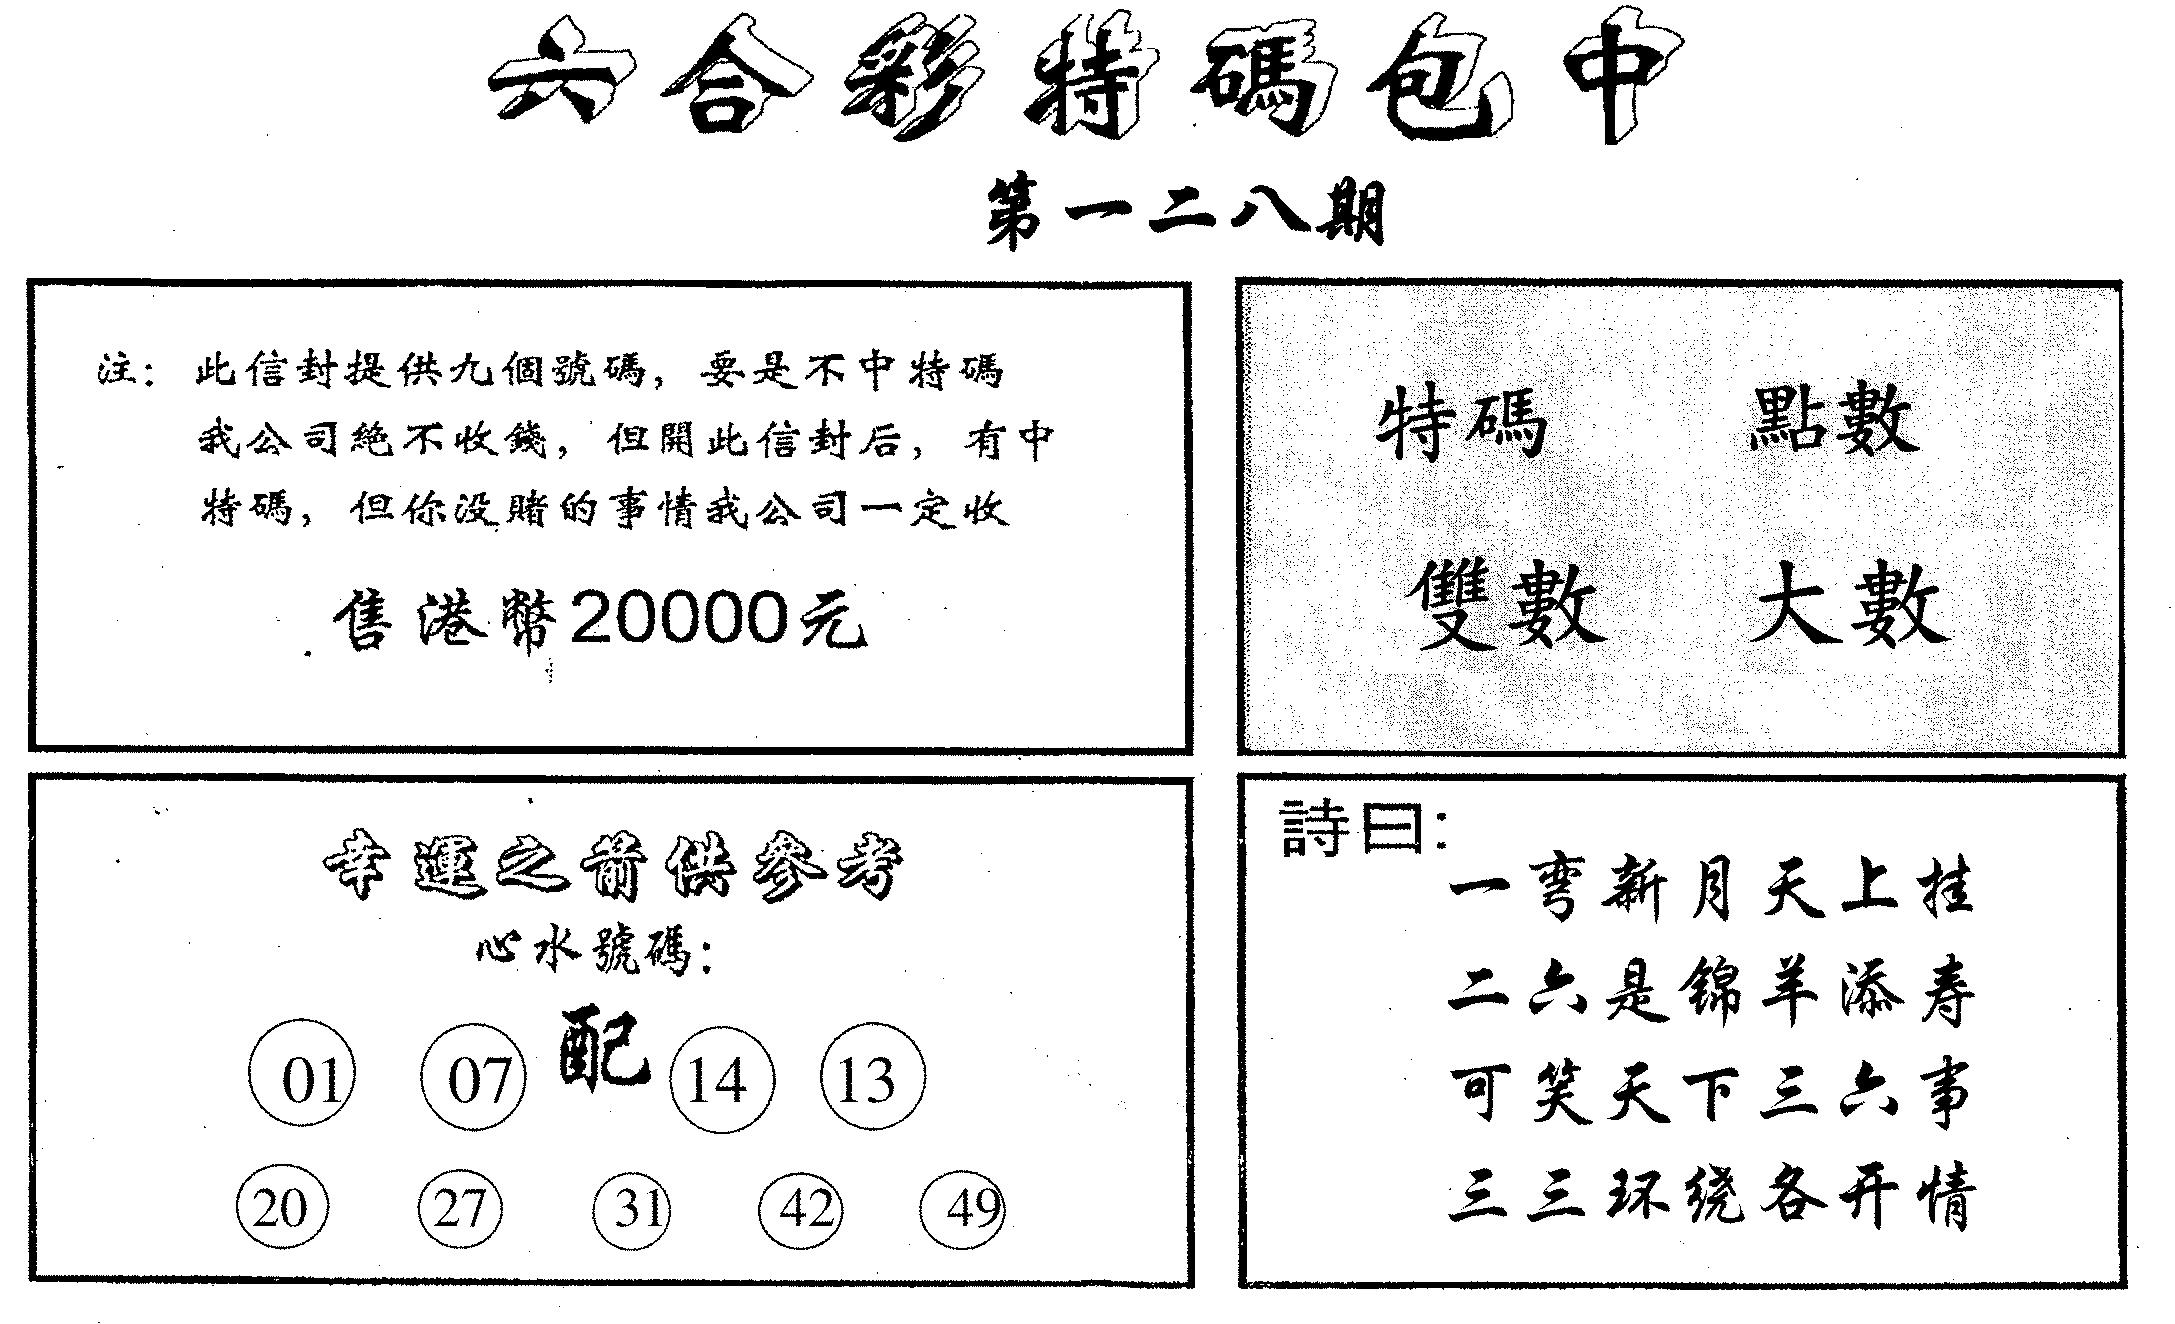 六合彩特碼包中
第一二八期
注：此信封提供九個號碼，要是不中特碼
我公司絕不收錢，但開此信封后，有中
特碼，但你没賭的事情我公司一定收
售港幣20000元
特碼 點數
雙數 大數
幸運之前供參考
心水號碼：
01 07 配 14 13
20 27 31 42 49
詩曰：
一弯新月天上挂
二六是锦羊添寿
可笑天下三六事
三三环绕各开情